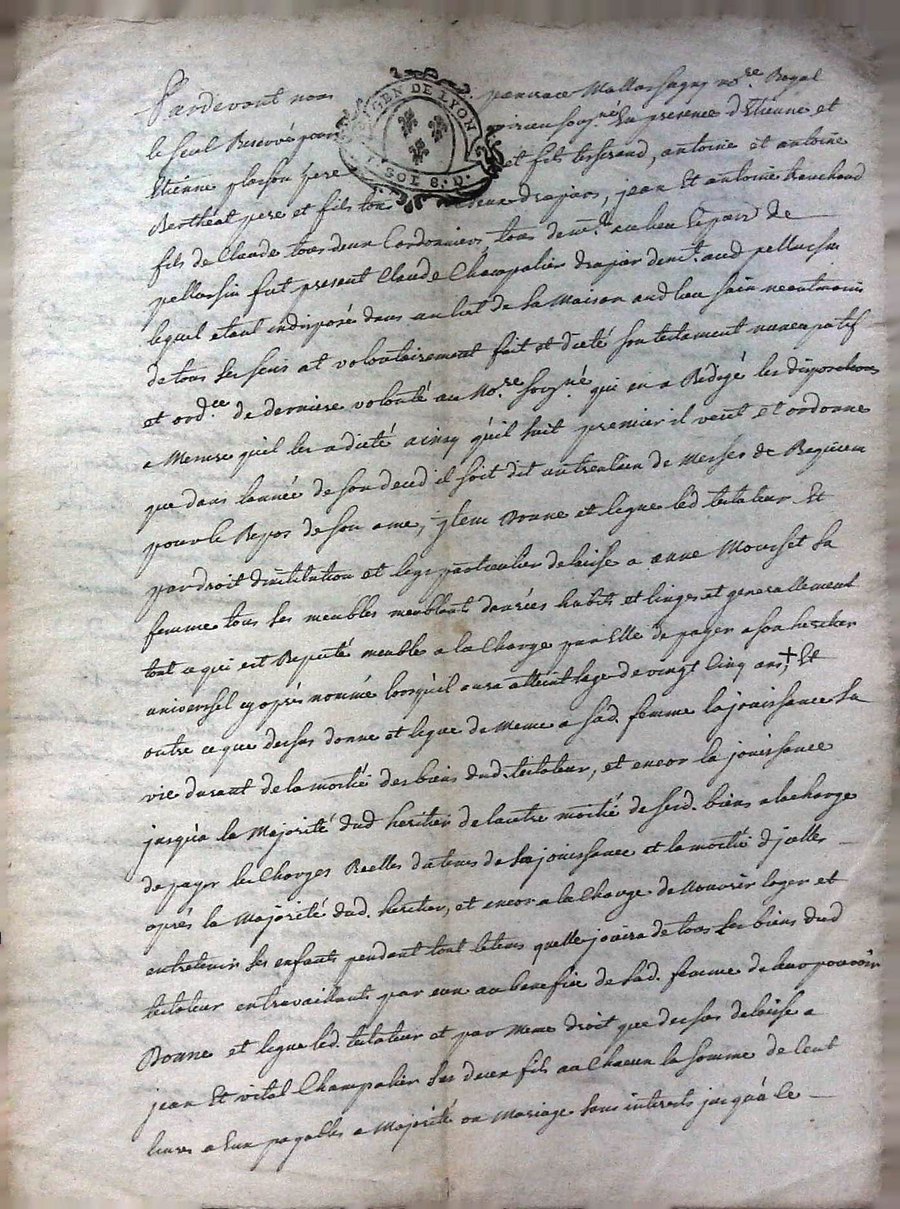 Pardevant nous pancrace Mallassagny no.re Royal
le seul Reservé pour soug.né En presence d'Etienne et
Etienne plasson pere et fils tisserand, antoine et antoine
Bertheat pere et fils tous deux drapiers, jean Et antoine
fils de Claude tous deux Cordonniers tous dem.ts au lieu et par.sse de
pellussin fut present Claude Champalier drapier dem.t aud pellussin
lequel etant indisposé dans un lit de sa Maison aud lieu sain neantmoins
de tous ses sens at volontairement fait et dicté son testament nuncupatif
et ord.ce de derniere volonté au No.re soug.né qui en a Redigé les dispositions
a Mesure quil les a dicté ainsy qu'il suit premier il veut et ordonne
que dans lannée de son deced il soit dit un trentain de Messes de Requiem
pour le Repos de son ame, jtem Donne et legue led. testateur Et
par droit dinstitution et legs particulier delaisse a anne Mousset sa
femme tous ses meubles meublants danrées habits et linges et generallement
tout ce qui est Reputé meuble a la Charge par Elle de payer a son heritier
universel cy aprés nommée lorsquil aura atteint lage de vingt Cinq ans,+ Et
outre ce que dessus donne et legue de Meme a sad. femme la jouissance sa
vie durant de la moitié des biens dud. testateur, et encor la jouissance
jusqua la Majorité dud heritier de lautre moitié de sesd. biens a la charge
de payer les Charges Reelles du tems de sa jouissance et la moitié djcelles
aprés la Majorité dud. heritier, et encor a la Charge de Nourrir loger et
entretenir ses enfants pendant tout le tems quelle jouira de tous les biens dud
testateur en travaillants par eux au benefice de sad. femme de leur pouvoir
Donne et legue led. testateur et par Meme droit que dessus delaisse a
jean Et vital Champalier ses deux fils a Chacun la somme de Cent
livres a Eux payables a Majorité ou Mariage sans interets jusqu'a le
GEN DE LYON
SOL 8. D.